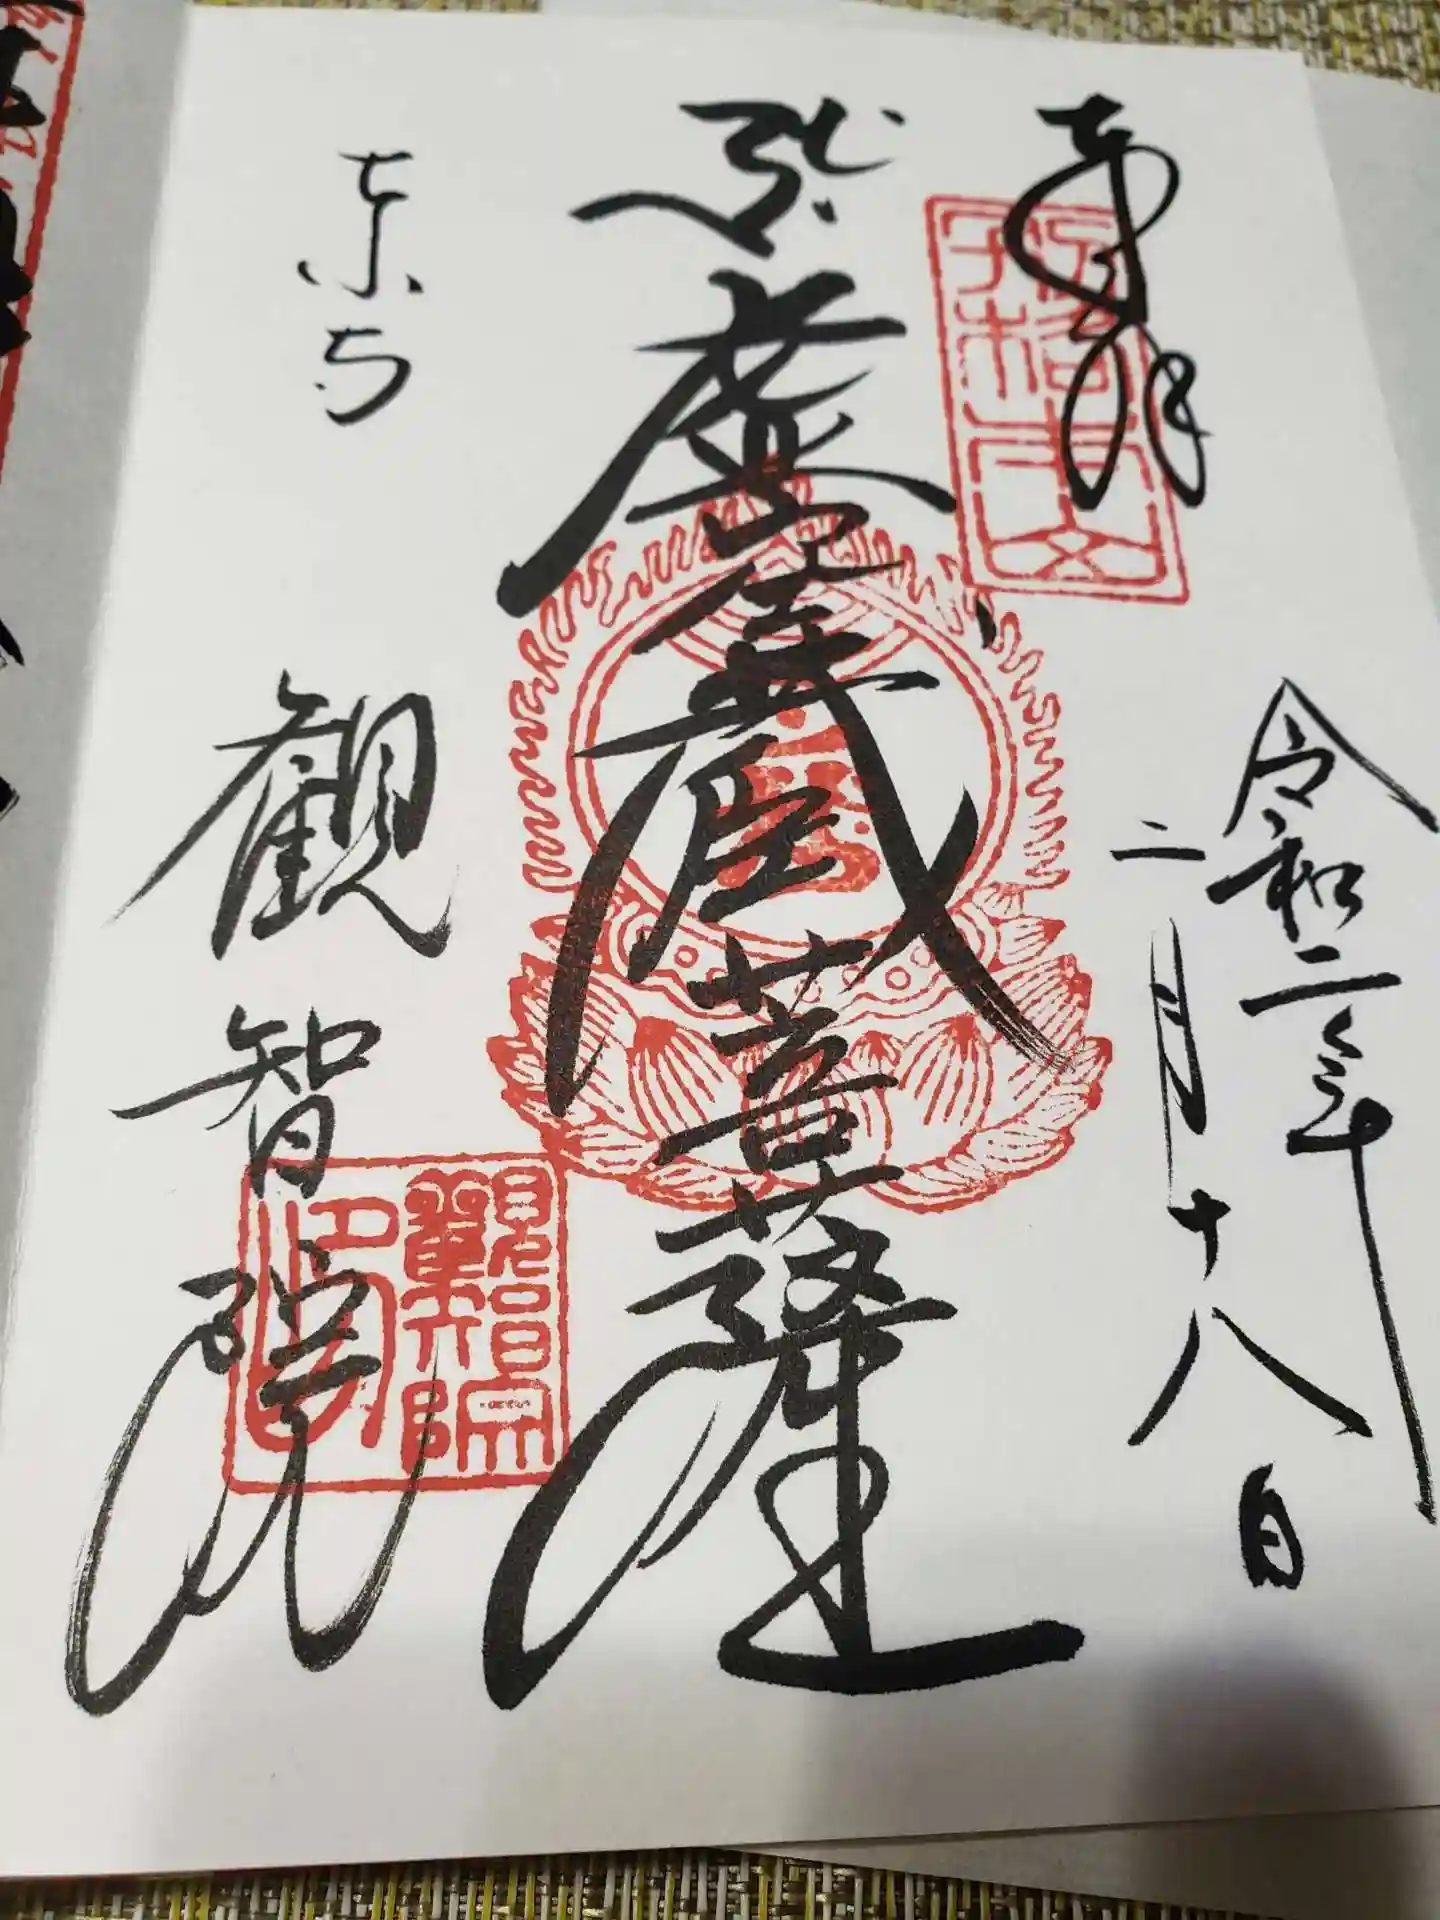 奉拝
令和二年
二月十八日
虚空蔵菩薩
東寺
観智院
觀智院印